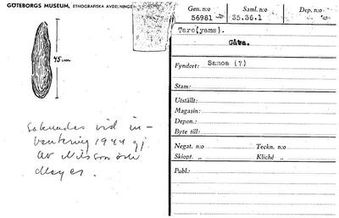 GÖTEBORGS MUSEUM, ETNOGRAFISKA AVDELNINGEN
Gen. n:o Saml. n:o Dep. n:o
56981 35.36.1
Taro(yams).
Gåva.
45 cm
Fyndort: Samoa (?)
Stam:
Utställt:
Magasin:
Depon.:
Byte till:
Negat. n:o Teckn. n:o
Skiopt. „ Kliché „
Publ:
Saknades vid in-
ventering 1944 gj.
av Nilsson och